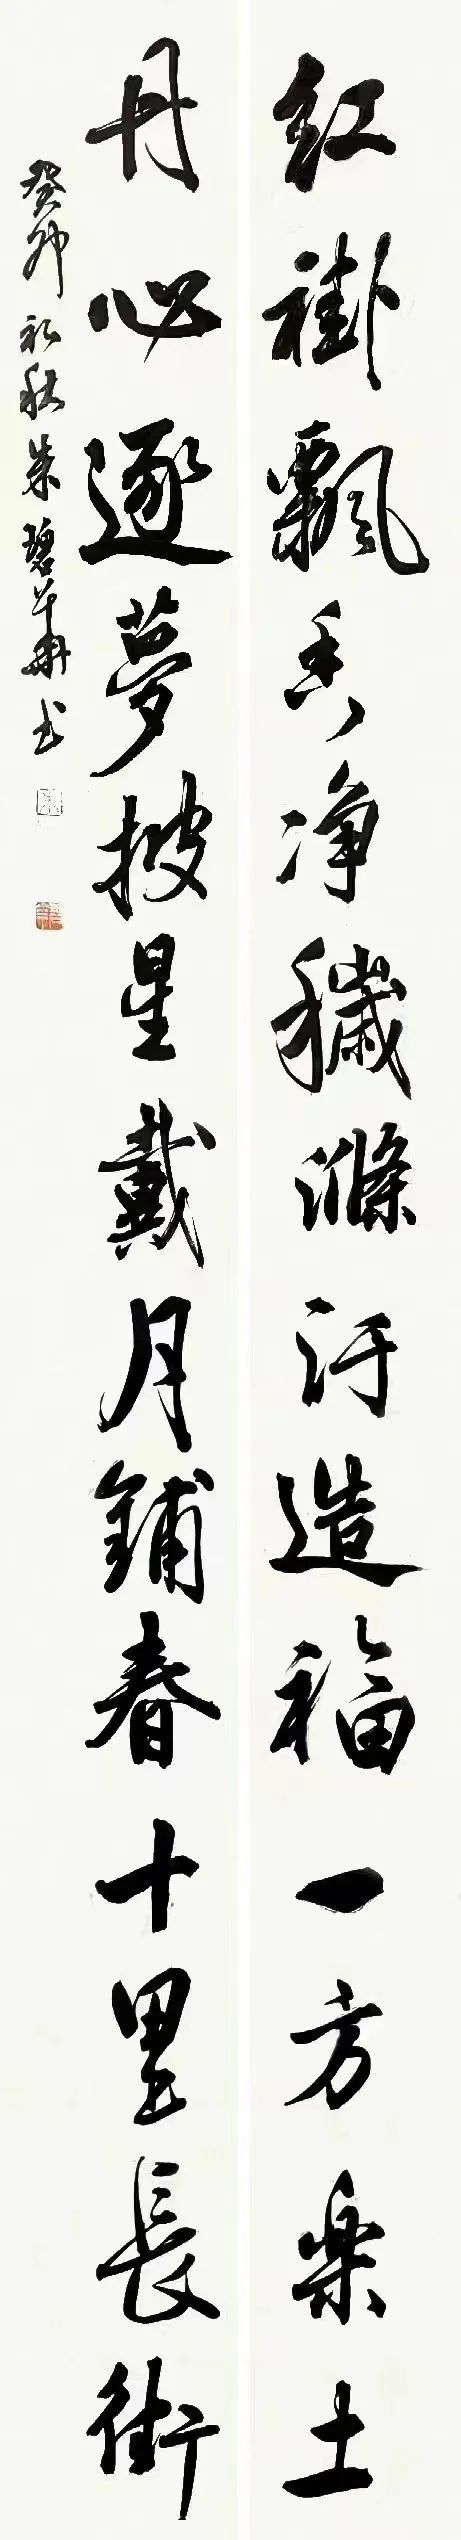 紅褂飄香净穢滌汙造福一方樂土
丹心逐夢披星戴月鋪春十里長街
癸卯初秋朱碧華書